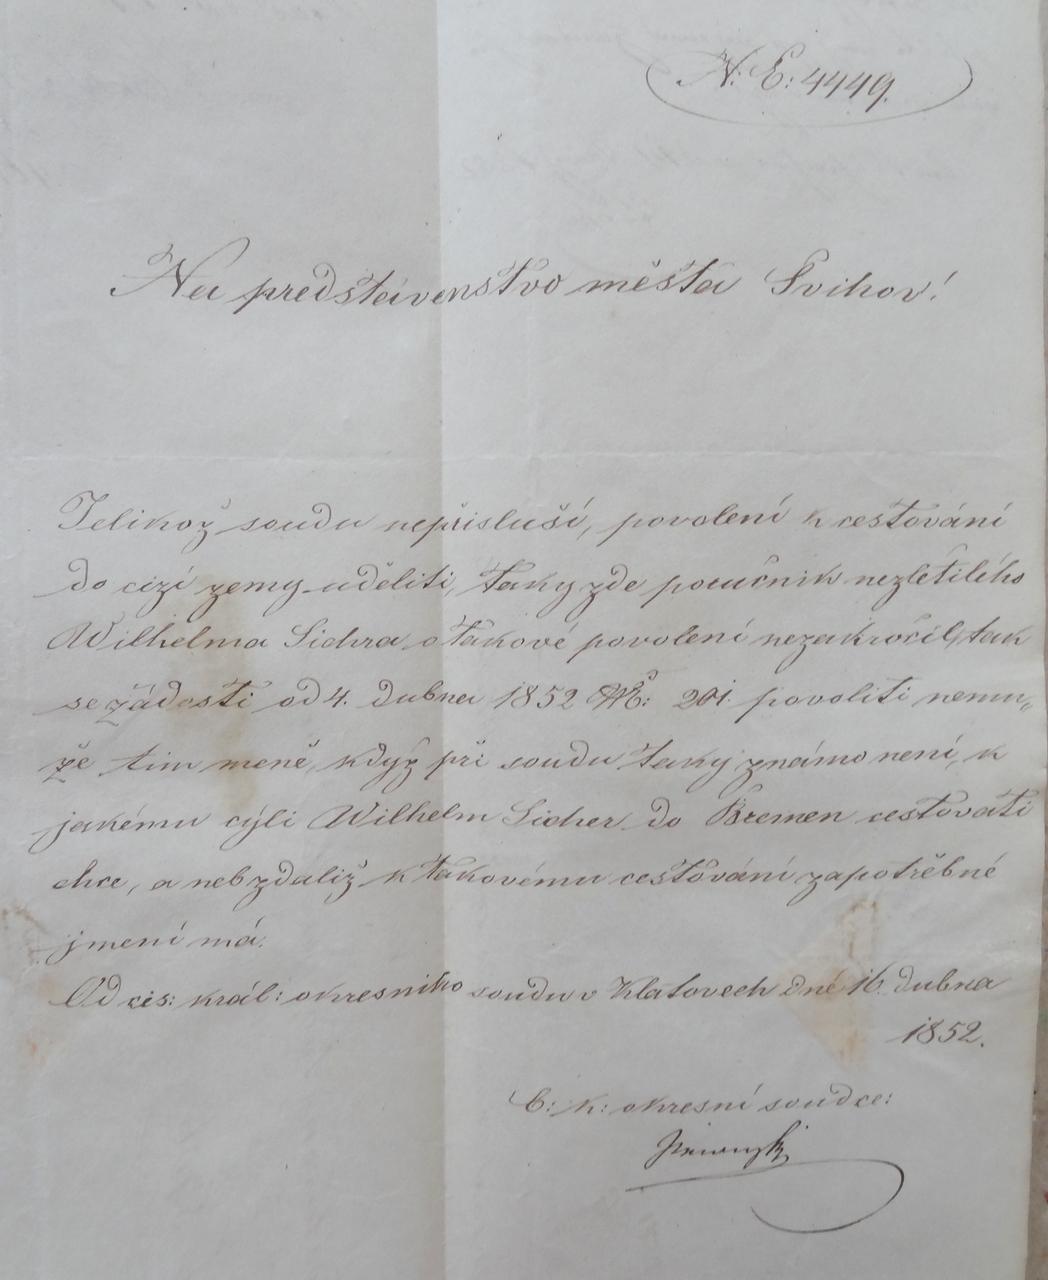 N: E: 4449.
Na predstávenstvo města Švihov!
Jelikož soudu nepřísluší, povolení k cestování
do cizí zemy uděliti, taky zde poručnik nezletilého
Wilhelma Sichra o takové povolení nezakročil, tak
se žádosti od 4. dubna 1852 NE: 201. povoliti nemu„
že tim meně, když při soudu taky známo není, k
jakému cýli Wilhelm Sicher do Bremen cestovati
chce, a nebzdaliž k takovému cestování zapotřebné
jmení má.
Od cís: král: okresniho soudu v Klatovech dné 16. dubna
1852.
C: k: okresní soudce: